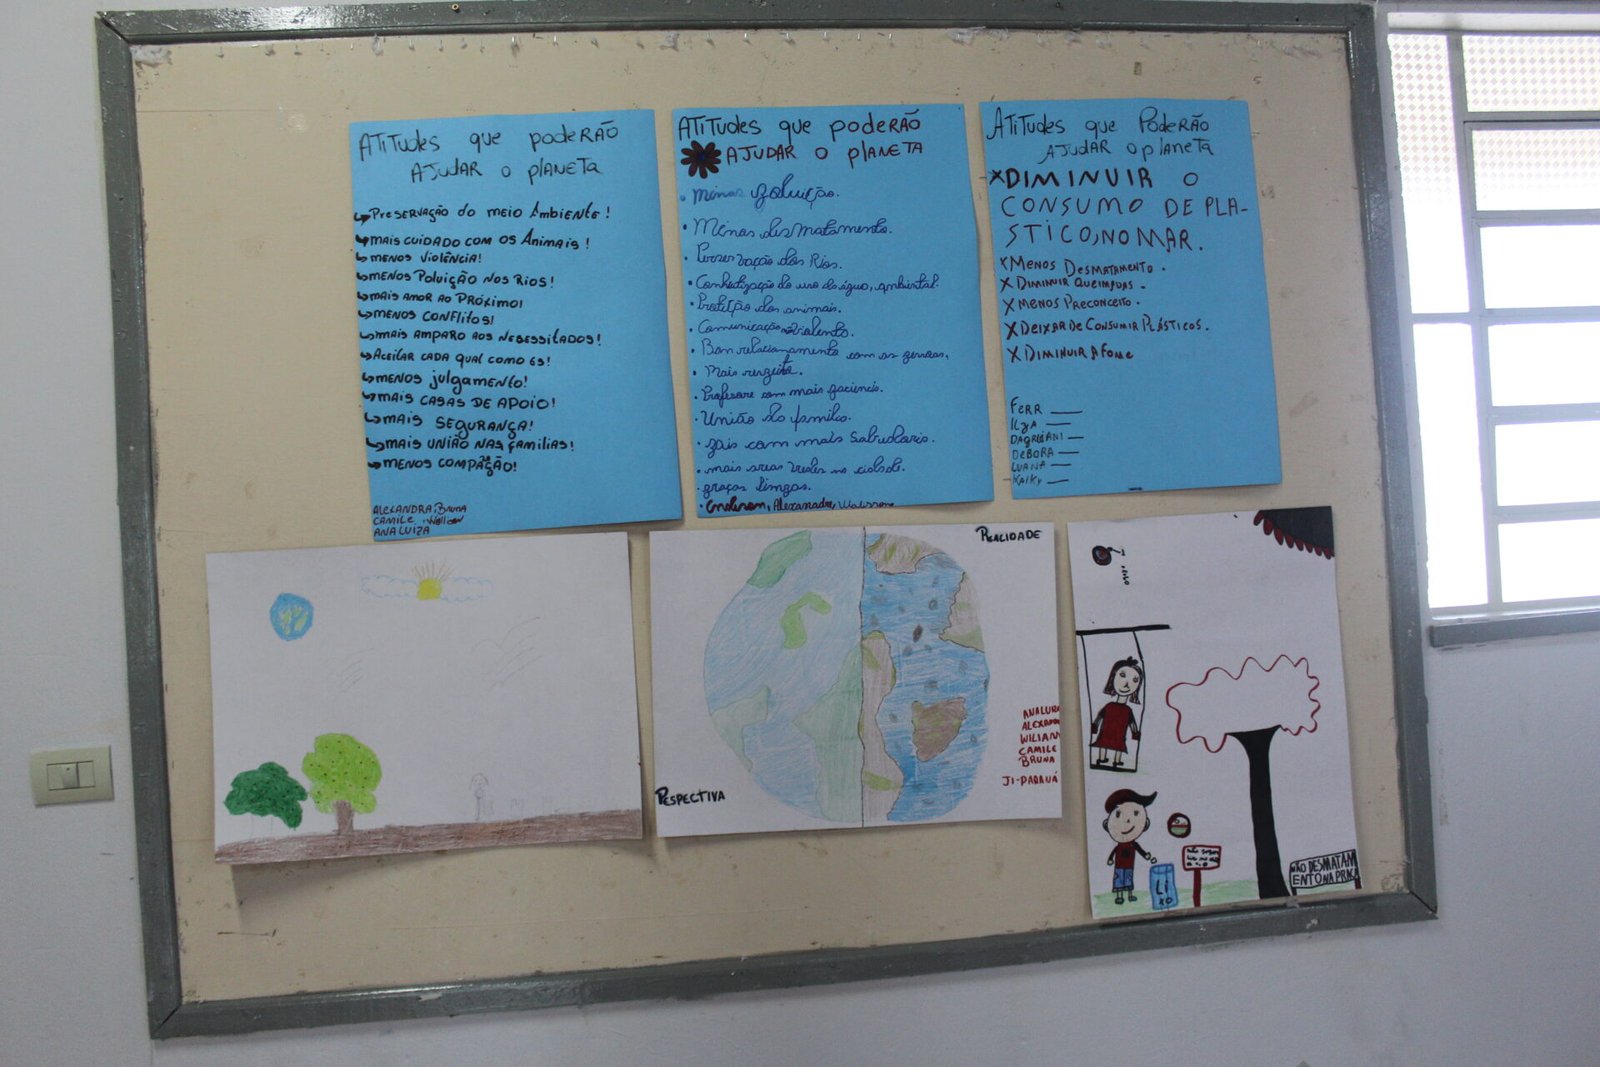 ATITUDES QUE PODERÃO
AJUDAR O PLANETA
PRESERVAÇÃO DO MEIO AMBIENTE!
MAIS CUIDADO COM OS ANIMAIS!
MENOS VIOLÊNCIA!
MENOS POLUIÇÃO NOS RIOS!
MAIS AMOR AO PRÓXIMO!
MENOS CONFLITOS!
MAIS AMPARO AOS NEBESSITADOS!
ACEITAR CADA QUAL COMO ES!
MENOS JULGAMENTO!
MAIS CASAS DE APOIO!
MAIS SEGURANÇA!
MAIS UNIÃO NAS FAMILIAS!
MENOS COMPAÇÃO!
ALEXANDRA, BRUNA
CAMILE,
ANA LUIZA
ATITUDES QUE PODERÃO
AJUDAR O PLANETA
• Menas poluição.
• Menas desmatamento.
• Perservação dos Rios.
• do uso da água, ambiental.
• Proteção dos animais.
• Comunicação violenta.
• Bom relacionamento com as
• Mais
• Professore com mais paciencis.
• União do familia.
• pais com mais
• mais areas verdes na cidade.
• praças limpas.
• Alexanadre,
ATITUDES QUE PODERÃO
AJUDAR O PLANETA
X DIMINUIR O
CONSUMO DE PLA-
STICO, NO MAR.
X MENOS DESMATAMENTO.
X DIMINUIR QUEIMADAS.
X MENOS PRECONCEITO.
X DEIXAR DE CONSUMIR PLÁSTICOS.
X DIMINUIR A FOME
FERR
ILZA
DAGRIZANI
DEBORA
LUANA
KAIKY
REALIDADE
PESPECTIVA
ANALUIZA
ALEXAND
WILIAN
CAMILE
BRUNA
JI-PARANÁ
LIXO
NÃO DESMATAM
ENTO NA PRAÇA